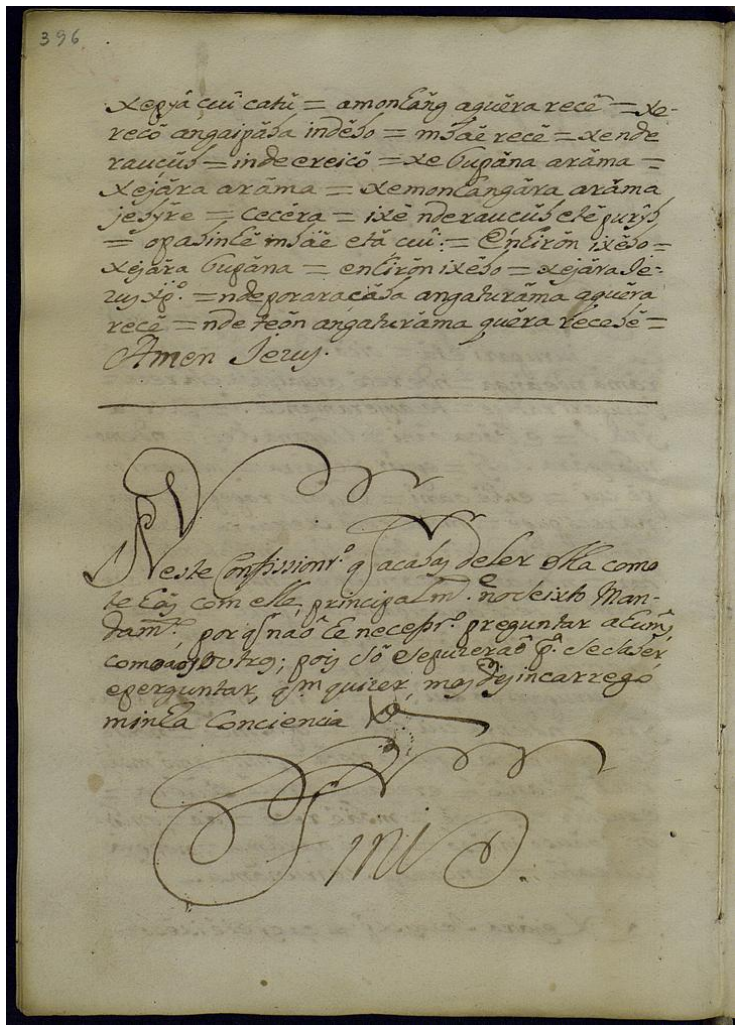 396
xepyâ cuî catũ = amonhãng aguẽra recẽ = xe-
recõ angaipãba indẽbo = mbãe recẽ = xende
rauçũb = inde ereicõ = xe Tupãna arãma =
xejãra arãma = xemonhangãra arãma
jebỹre = cecẽra = ixẽ nderauçũb etẽ purỹb
= opabinhẽ mbãe etã cuî = Entirõn ixẽbo =
xejãra Tupãna = entirõn ixẽbo = xejãra Je-
zus xp.º = nde poraracãba angaturãma aguẽra
recẽ = nde teõn angaturãma quẽra recebẽ =
Amen Jezus.
Neste Confissionr.º q acabas de ler olha como
te has com elle, principalm.te no sexto Man-
dam.to, porq naõ he necess.rº preguntar a huns,
como aos outros; pois só se puzeraõ p.ª se saber
e perguntar, q.m quizer, mas dis incarrego
minha Conciencia
Finis.